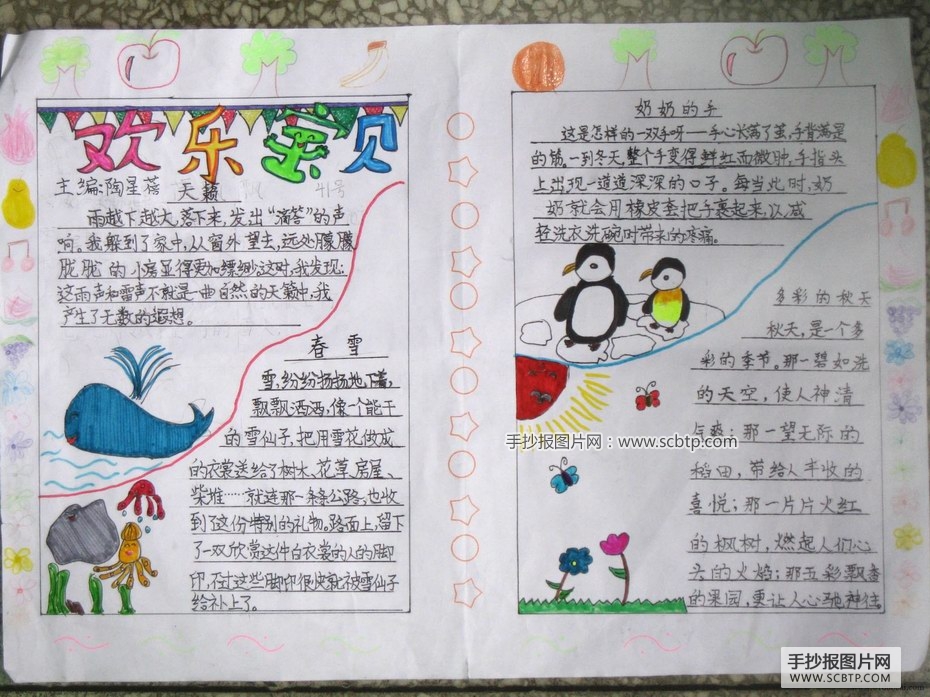 欢乐宝贝
主编:陶星蓓
41号
天籁
雨越下越大,落下来,发出“滴答”的声
响。我躲到了家中,从窗外望去,远处朦朦
胧胧的小房显得更加缥缈,这时,我发现:
这雨声和雷声不就是一曲自然的天籁中,我
产生了无数的遐想。
春雪
雪,纷纷扬扬地下着,
飘飘洒洒,像个能干
的雪仙子,把用雪花做成
的衣裳送给了树木、花草、房屋、
柴堆……就连那一条条公路,也收
到了这份特别的礼物。路面上,留下
了一双欣赏这件白衣裳的人的脚
印,不过这些脚印很快就被雪仙子
给补上了。
奶奶的手
这是怎样的一双手呀——手心长满了茧,手背满是
的筋,一到冬天,整个手变得鲜红而微肿,手指头
上出现一道道深深的口子。每当此时,奶
奶就会用橡皮套把手裹起来,以减
轻洗衣洗碗时带来的疼痛。
多彩的秋天
秋天,是一个多
彩的季节。那一碧如洗
的天空,使人神清
气爽;那一望无际的
稻田,带给人丰收的
喜悦;那一片片火红
的枫树,燃起人们心
头的火焰;那五彩飘香
的果园,更让人心驰神往。
手抄报图片网:www.scbtp.com
手抄报图片网
WWW.SCBTP.COM